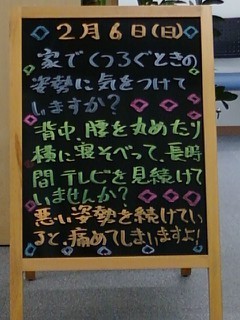 2月6日(日)
家でくつろぐときの
姿勢に気をつけて
しますか?
背中、腰を丸めたり
横に寝そべって、長時
間テレビを見続けて
いませんか?
悪い姿勢を続けてい
ると、痛めてしまいますよ!